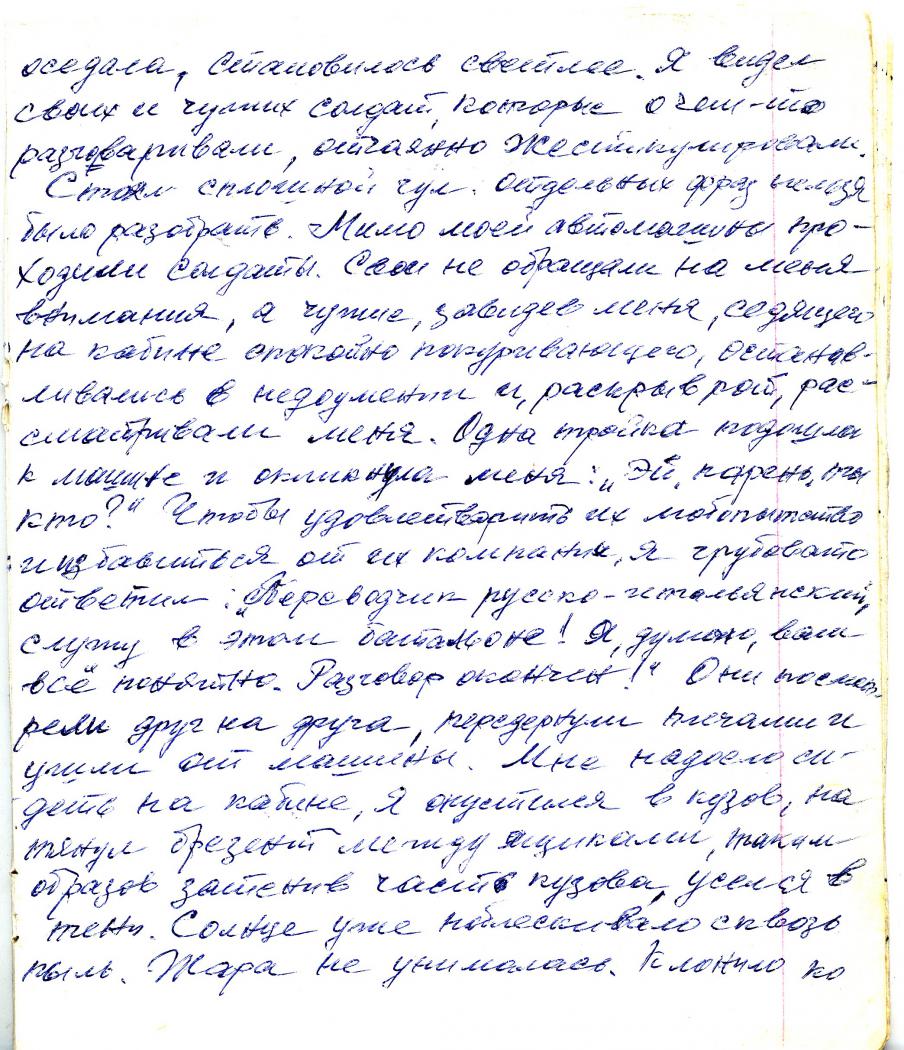 оседала, становилось светлее. Я видел
своих и чужих солдат, которые о чем-то
разговаривали, отчаянно жестикулировали.
Стоял сплошной гул. Отдельных фраз нельзя
было разобрать. Мимо моей автомашины про-
ходили солдаты. Свои не обращали на меня
внимания, а чужие, завидев меня, седящего
на кабине спокойно покуривающего, останав-
ливались в недоумении и, раскрыв рот, рас-
сматривали меня. Одна тройка подошла
к машине и окликнула меня: „Эй, парень, ты
кто?" Чтобы удовлетворить их любопытство
и избавиться от их компании, я грубовато
ответил: „Переводчик русско-итальянский,
служу в этом батальоне! Я, думаю, вам
всё понятно. Разговор окончен!" Они посмот-
рели друг на друга, передернули плечами и
ушли от машины. Мне надоело си-
деть на кабине, я опустился в кузов, на
тянул брезент между ящиками, таким
образов затенив часть кузова, уселся в
тени. Солнце уже поблескивало сквозь
пыль. Жара не унималась. Клонило ко